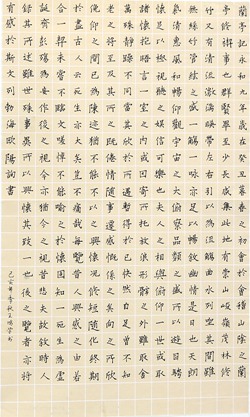 蘭亭記永和九歲在癸丑暮春之初會於會稽山陰之蘭
亭修禊事也群賢畢至少長咸集此地有崇山峻嶺茂林修
竹又有清流激湍暎帶左右引以為流觴曲水列坐其間雖
無絲竹管絃之盛一觴一詠亦足以暢敘幽情是日也天朗
氣清惠風和暢仰觀宇宙之大俯察品類之盛所以遊目騁
懷足以極視聽之娛信可樂也夫人之相與俯仰一世或取
諸懷抱晤言一室之內或因寄所託放浪形骸之外雖取舍
萬殊靜躁不同當其欣於所遇暫得於己快然自足曾不知
老之將至及其所之既倦情隨事遷感慨係之矣向之所欣
俛仰之間已為陳迹猶不能不以之興懷況修短隨化終期
於盡古人云死生亦大矣豈不痛哉每覽昔人興感之由若
合一契未嘗不臨文嗟悼不能喻之於懷固知一死生為虛
誕齊彭殤為妄作後之視今亦猶今之視昔悲夫故敘時人
録其所述雖世殊事異所以興懷其致一也後之覽者亦將
有感於斯文列勃海歐陽詢書
己亥年季秋王鴻书